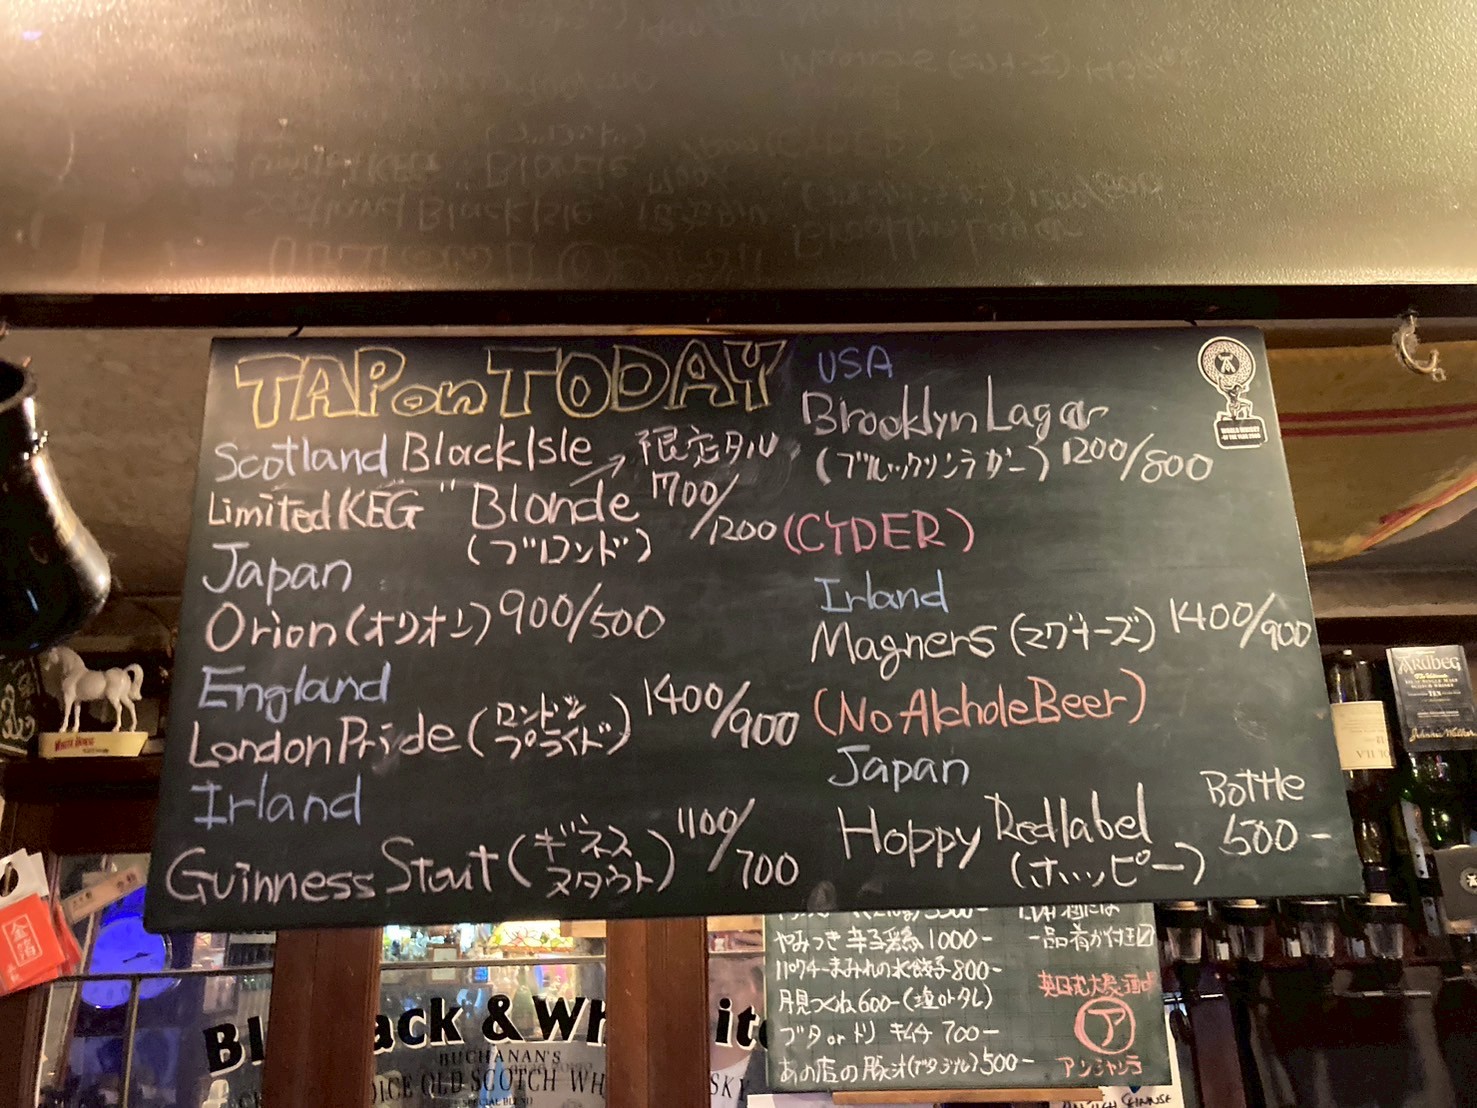 TAP on TODAY
Scotland Black Isle → 限定タル
Limited KEG "Blonde 1700/1200
(ブロンド)
Japan
Orion (オリオン) 900/500
England
London Pride (ロンドンプライド) 1400/900
Irland
Guinness Stout (ギネススタウト) 1100/700
USA
Brooklyn Lagar
(ブルックリンラガー) 1200/800
(CYDER)
Irland
Magners (マグナーズ) 1400/900
(No Alchole Beer)
Japan
Bottle
Hoppy Redlabel 500-
(ホッピー)
WORLD WHISKY
OF THE YEAR 2008
ARDBEG
TEN
WHITE HORSE
1000-
パクチーまみれの水餃子 800-
月見つくね 600-(塩orタレ)
ブタ or トリ キムチ 700-
あの店の豚汁(ブタジル) 500-
一品肴が付き☑
ア
アンジャンラ
Black & White
BUCHANAN'S
CHOICE OLD SCOTCH WHISKY
SPECIAL BLEND